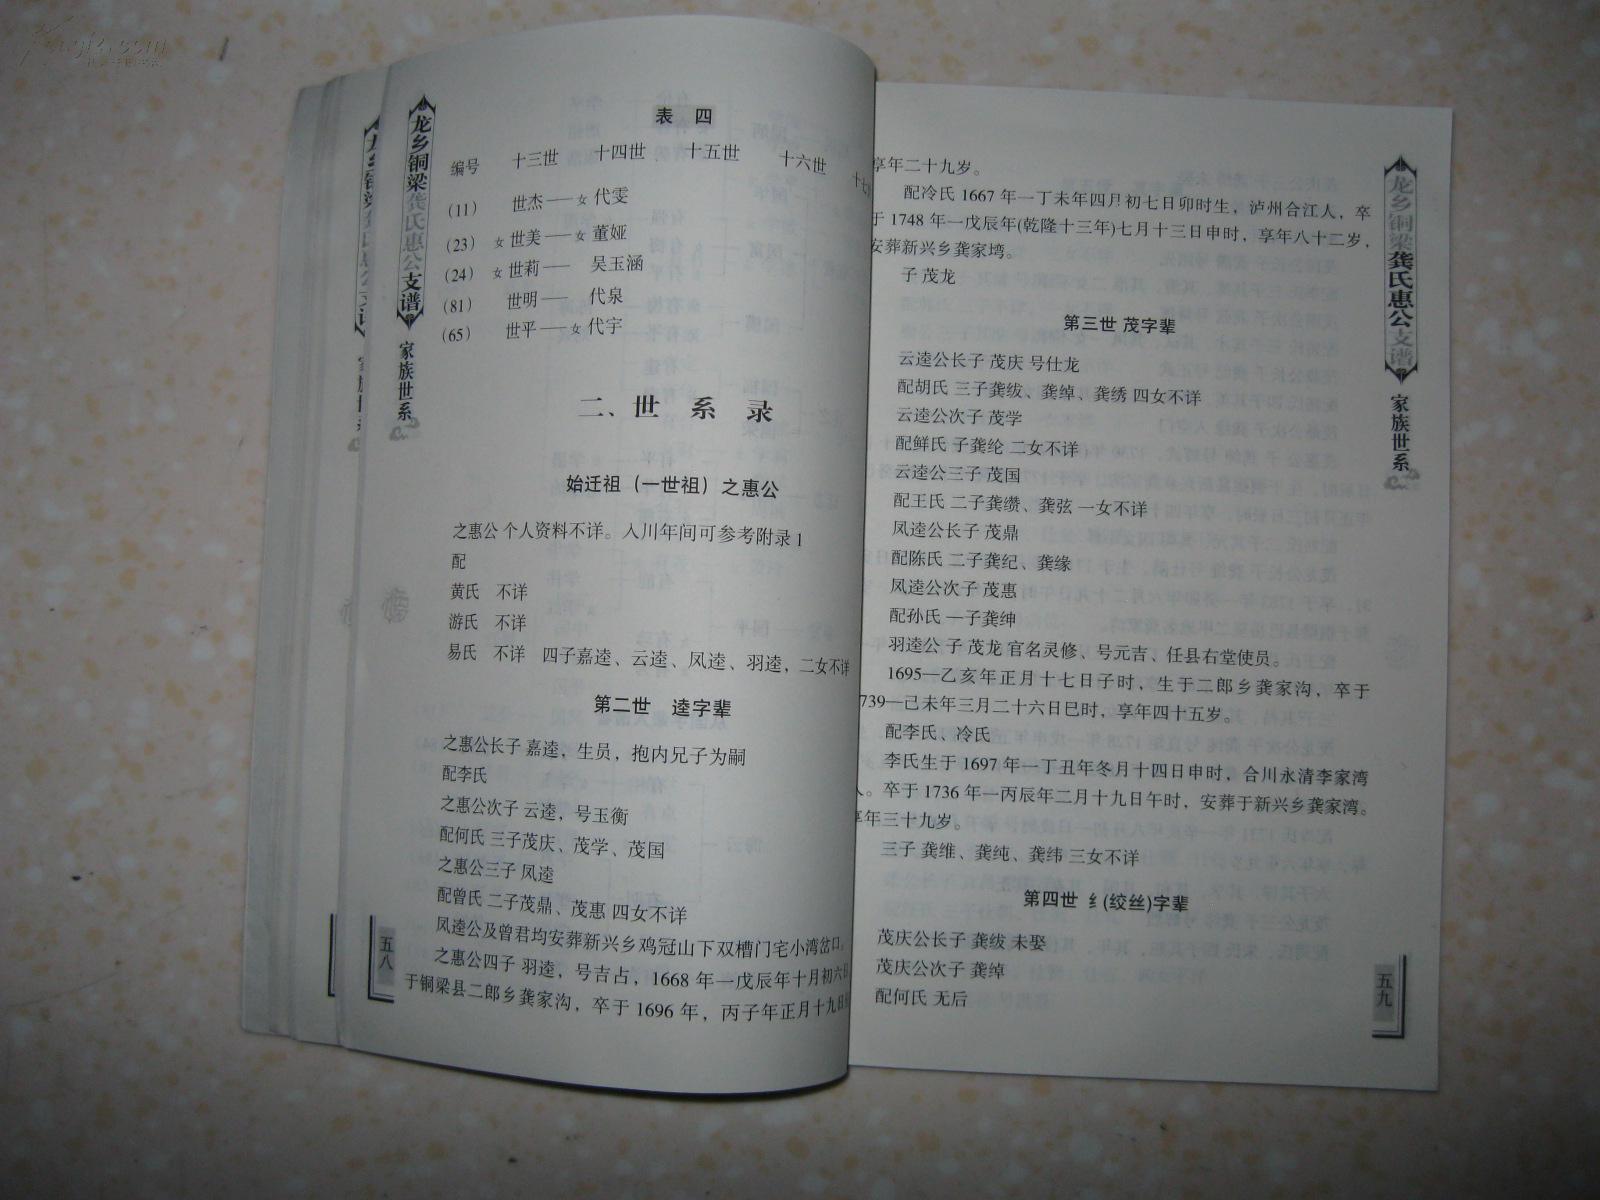 龙乡铜梁龚氏惠公支谱
家族世系
表 四
编号 十三世 十四世 十五世 十六世
(11) 世杰——女 代雯
(23) 女 世美——女 董娅
(24) 女 世莉—— 吴玉涵
(81) 世明—— 代泉
(65) 世平——女 代宇
二、世 系 录
始迁祖（一世祖）之惠公
之惠公 个人资料不详。入川年间可参考附录1
配
黄氏 不详
游氏 不详
易氏 不详 四子嘉逵、云逵、凤逵、羽逵，二女不详
第二世 逵字辈
之惠公长子 嘉逵，生员，抱内兄子为嗣
配李氏
之惠公次子 云逵，号玉衡
配何氏 三子茂庆、茂学、茂国
之惠公三子 凤逵
配曾氏 二子茂鼎、茂惠 四女不详
凤逵公及曾君均安葬新兴乡鸡冠山下双槽门宅小湾岔口。
之惠公四子 羽逵，号吉占，1668 年一戊辰年十月初六日
于铜梁县二郎乡龚家沟，卒于 1696 年，丙子年正月十九日
五八
享年二十九岁。
配冷氏 1667 年一丁未年四月初七日卯时生，泸州合江人，卒
于 1748 年一戊辰年(乾隆十三年)七月十三日申时，享年八十二岁，
安葬新兴乡龚家塆。
子 茂龙
第三世 茂字辈
云逵公长子 茂庆 号仕龙
配胡氏 三子龚绂、龚绰、龚绣 四女不详
云逵公次子 茂学
配鲜氏 子龚纶 二女不详
云逵公三子 茂国
配王氏 二子龚缵、龚弦 一女不详
凤逵公长子 茂鼎
配陈氏 二子龚纪、龚缘
凤逵公次子 茂惠
配孙氏 一子龚绅
羽逵公 子 茂龙 官名灵修、号元吉、任县右堂使员。
1695—乙亥年正月十七日子时，生于二郎乡龚家沟，卒于
739—己未年三月二十六日巳时，享年四十五岁。
配李氏、冷氏
李氏生于 1697 年一丁丑年冬月十四日申时，合川永清李家湾
人。卒于 1736 年一丙辰年二月十九日午时，安葬于新兴乡龚家湾。
享年三十九岁。
三子 龚维、龚纯、龚纬 三女不详
第四世 纟(绞丝)字辈
茂庆公长子 龚绂 未娶
茂庆公次子 龚绰
配何氏 无后
龙乡铜梁龚氏惠公支谱
家族世系
五九